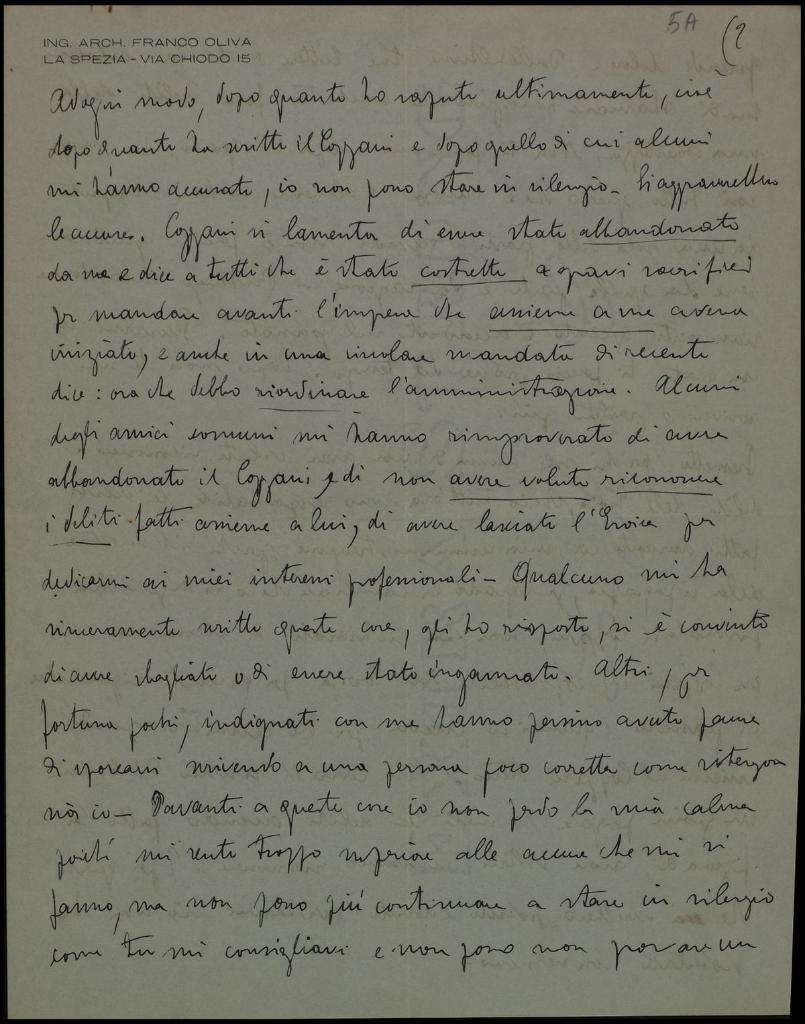 5A (2
ING. ARCH. FRANCO OLIVA
LA SPEZIA - VIA CHIODO 15
Ad ogni modo, dopo quanto ho saputo ultimamente, cioè
dopo quanto ha scritto il Cozzani e dopo quello di cui alcuni
mi hanno accusato, io non posso stare in silenzio -
le accuse. Cozzani si lamenta di essere stato abbandonato
da me e dice a tutti che è stato costretto a gravi sacrifici
per mandare avanti l'impresa che assieme a me aveva
iniziato, e anche in una circolare mandata di recente
dice: ora che debbo riordinare l'amministrazione. Alcuni
degli amici comuni mi hanno rimproverato di avere
abbandonato il Cozzani e di non avere voluto riconoscere
i debiti fatti assieme a lui, di avere lasciato l'Eroica per
dedicarmi ai miei interessi professionali - Qualcuno mi ha
sinceramente scritto queste cose, gli ho risposto, si è convinto
di avere sbagliato o di essere stato ingannato. Altri, per
fortuna pochi, indignati con me hanno persino avuto paura
di sporcarsi scrivendo a una persona poco corretta come ritengon
sia io - Davanti a queste cose io non perdo la mia calma
poiché mi sento troppo superiore alle accuse che mi si
fanno, ma non posso più continuare a stare in silenzio
come tu mi consigliavi e non posso non provare un